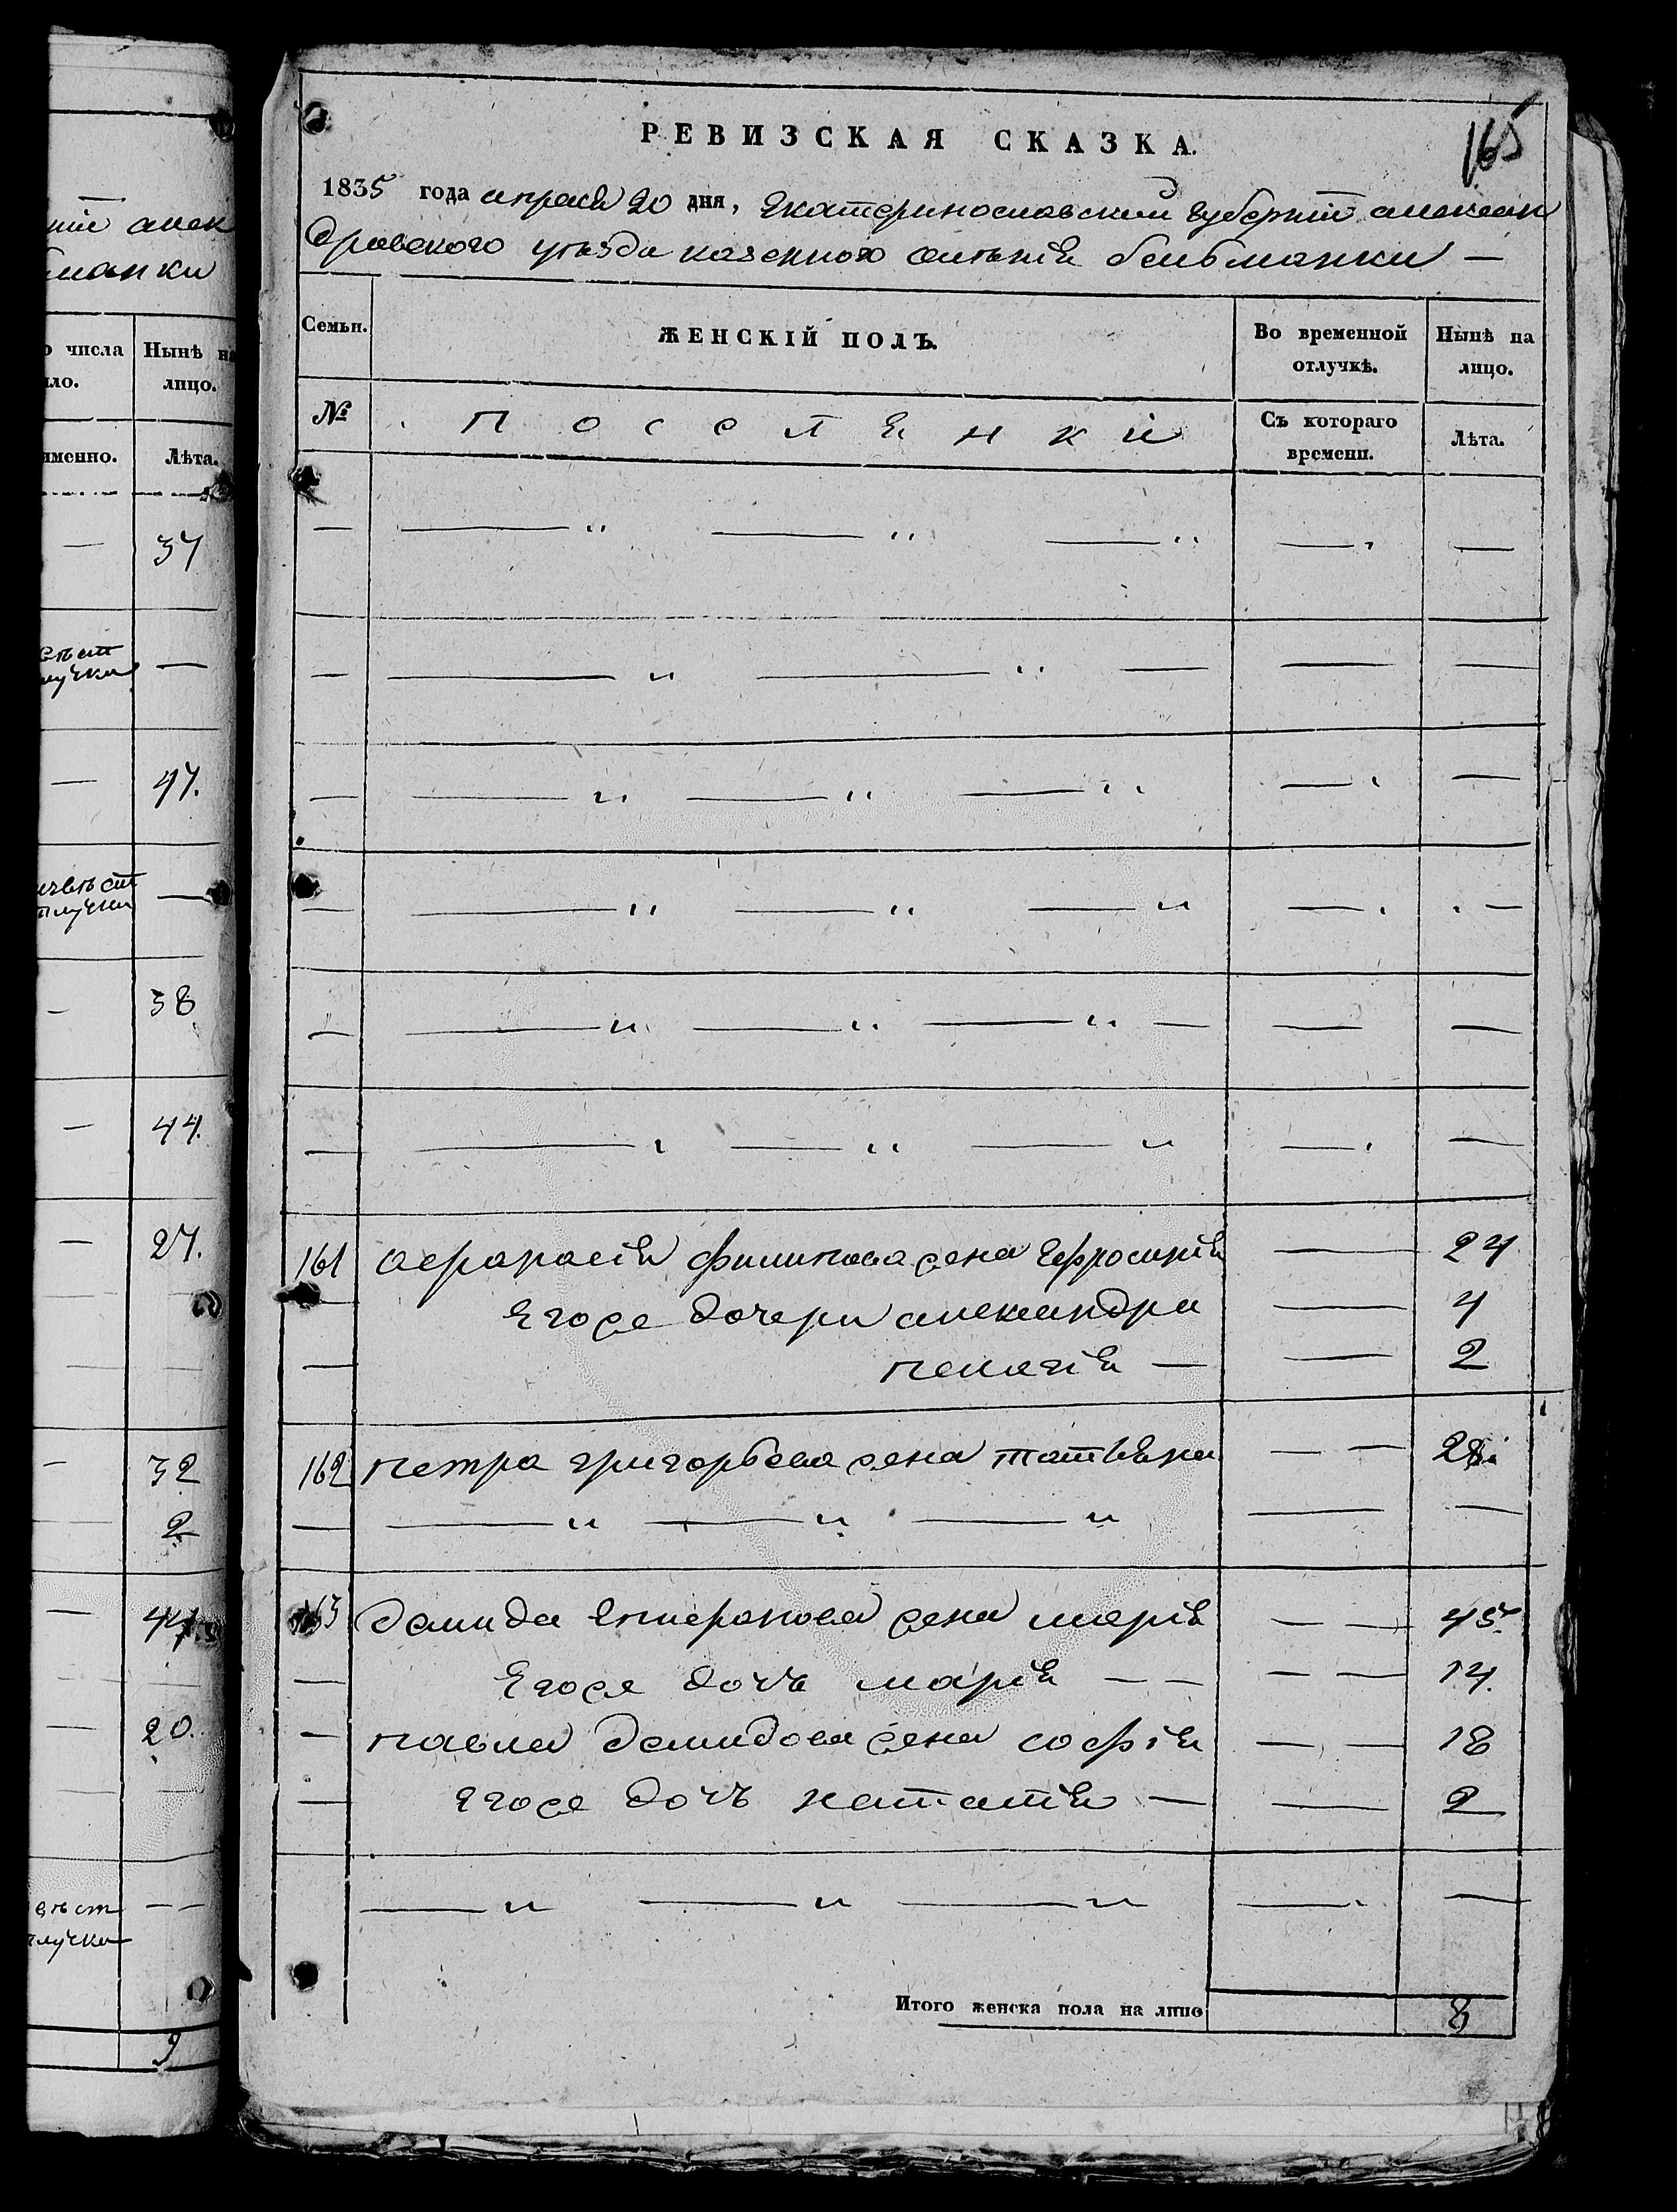 ніи алек
манки
числа Нынѣ на
ло. лицо.
именно. Лѣта.
— 37
вѣст
лучки —
— 47.
извѣст
тлучки —
— 38
— 44.
— 27.
— 32
— 2
— 44.
— 20.
вѣст — —
лучки
9
165
РЕВИЗСКАЯ СКАЗКА.
1835 года апреля 20 дня, Екатеринославской губерніи александ
дровского уѣзда казенного селѣнія бельманки —
Семьи. ЖЕНСКІЙ ПОЛЪ. Во временной отлучкѣ. Нынѣ на лицо.
№ поселенки Съ котораго времени. Лѣта.
161 афанасія филипова жена Ефросинія — 24
— Егоже дочери александра — 4
— пелагія — — 2
162 петра григорьева жена татьяна — — 28
163 демида епифанова жена марія — — 45
— Егоже дочь марія — — — — 14.
— павла демидова жена софія — — 18
— Егоже дочь наталія — — 2
Итого женска пола на лицо 8